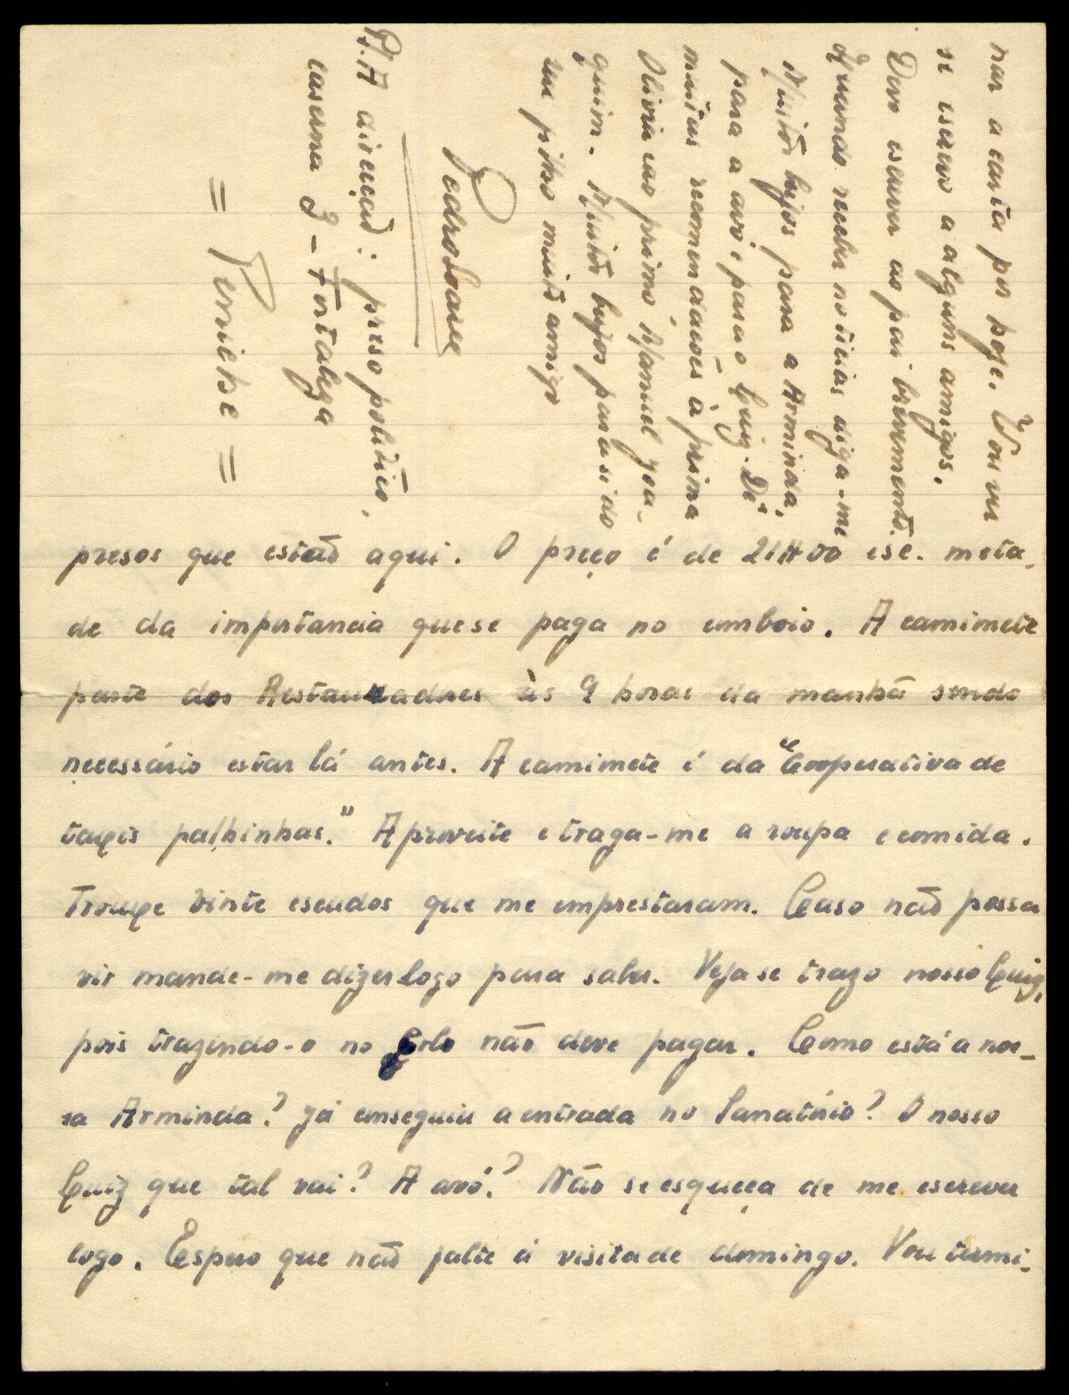 presos que estão aqui. O preço é de 21$00 esc. meta-
de da importancia que se paga no comboio. A camimete
parte dos Restauradores às 9 horas da manhã sendo
necessário estar lá antes. A camimete é da "Cooperativa de
taxis palhinhas." Aproveite e traga-me a roupa e comida.
Trouxe vinte escudos que me emprestaram. Caso não possa
vir mande-me dizer logo para saber. Veja se traz o nosso Luiz,
pois trazendo-o no colo não deve pagar. Como está a nos-
sa Arminda? Já conseguiu a entrada no Sanatório? O nosso
Luiz que tal vai? A avó? Não se esqueça de me escrever
logo. Espero que não falte à visita de domingo. Vou termi-
nar a carta por hoje. Vou ver
se escrevo a alguns amigos.
Devo escrever ao pai brevemente.
Quando receber noticias diga-me
Muitos beijos para a Arminda,
para a avó, para o Luiz. Dê
muitas recomendações à prima
Olivia ao primo Manuel Joa-
quim. Muitos beijos para si do
seu filho muito amigo
Pedro Soares
P.S. A direção: preso politico,
caserna 3 - Fortaleza
= Peniche =